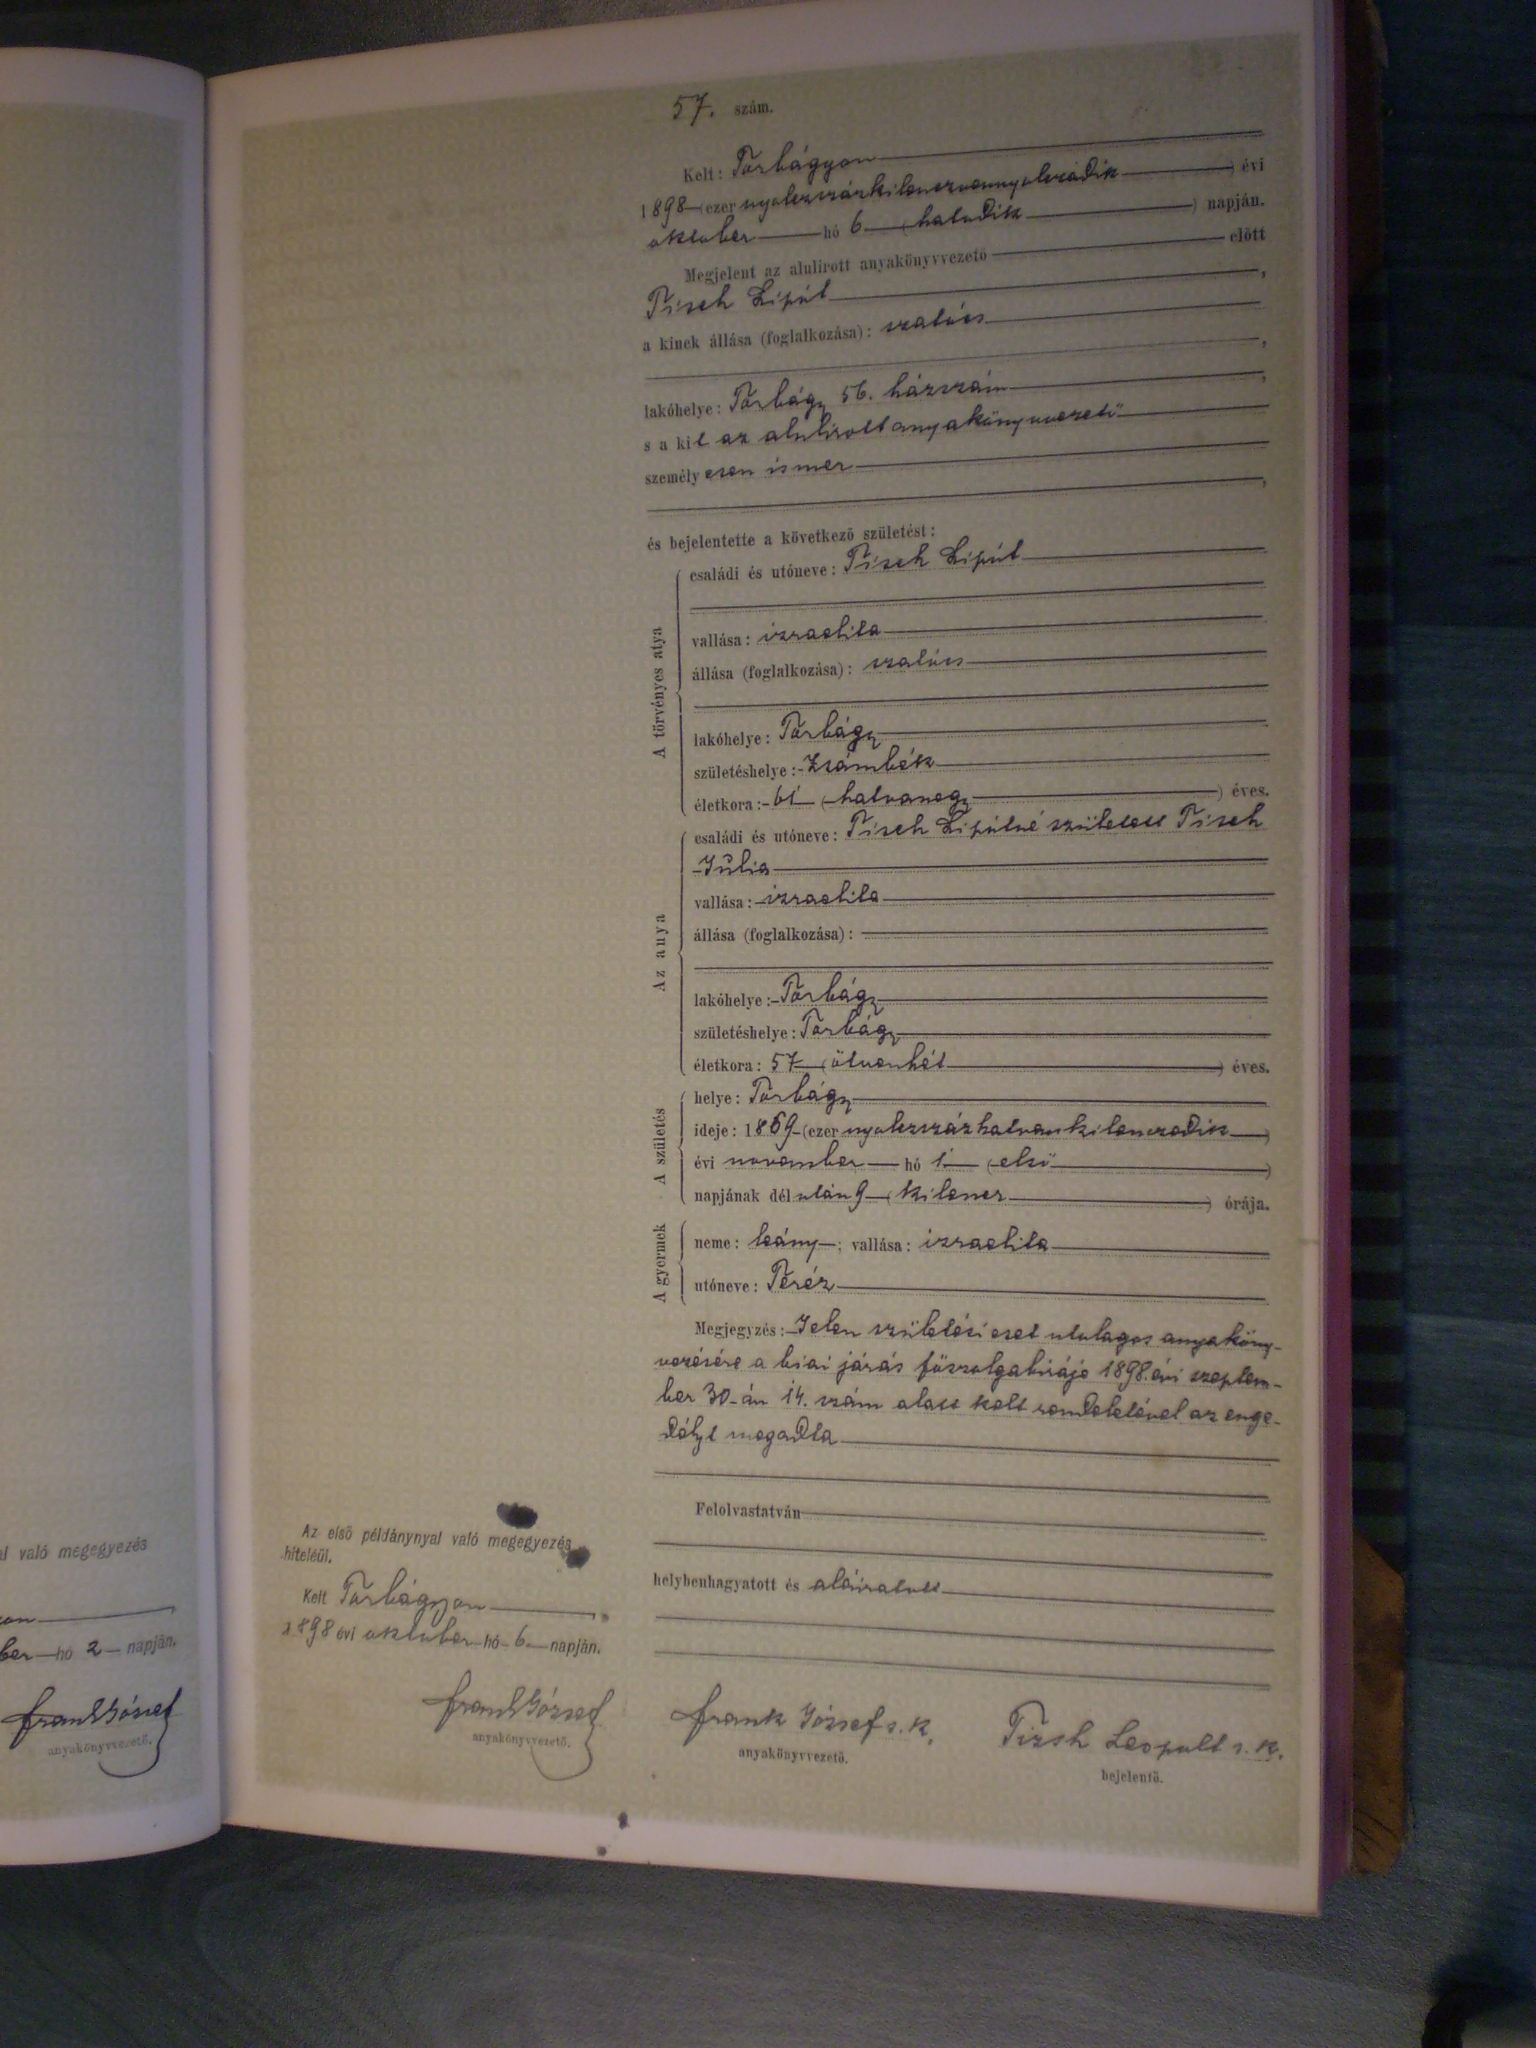 57. szám.
Kelt: Torbágyon
1898 (ezer nyolczszázkilenczvennyolczadik) évi
október hó 6 (hatodik) napján.
Megjelent az alulirott anyakönyvvezető előtt
Tisch Lipót,
a kinek állása (foglalkozása): szatócs
,
lakóhelye: Torbágy 56. házszám,
s a kit az alulirott anyakönyvvezető
személyesen ismer
,
és bejelentette a következő születést:
A törvényes atya
családi és utóneve: Tisch Lipót
vallása: izraelita
állása (foglalkozása): szatócs
lakóhelye: Torbágy
születéshelye: Zsámbék
életkora: 61 (hatvanegy) éves.
Az anya
családi és utóneve: Tisch Lipótné született Tisch
Júlia
vallása: izraelita
állása (foglalkozása):
lakóhelye: Torbágy
születéshelye: Torbágy
életkora: 57 (ötvenhét) éves.
A születés
helye: Torbágy
ideje: 1869 (ezer nyolczszázhatvankilenczedik)
évi november hó 1 (első)
napjának délután 9 (kilencz) órája.
A gyermek
neme: leány; vallása: izraelita
utóneve: Teréz
Megjegyzés: Jelen születési eset utólagos anyaköny-
vezésére a biai járás főszolgabirája 1898. évi szeptem-
ber 30-án 14. szám alatt kelt rendeletével az enge-
délyt megadta
Felolvastatván
helybenhagyatott és aláiratott
Frank József s. k.
anyakönyvvezető.
Tizsh Leopolt s. k.
bejelentő.
Az első példánynyal való megegyezés
hiteléül.
Kelt Torbágyon,
1898 évi október hó 6 napján.
Frank József
anyakönyvvezető.
al való megegyezés
hó 2 napján.
Frank József
anyakönyvvezető.